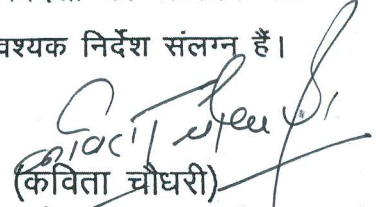 वश्यक निर्देश संलग्न हैं।
(कविता चौधरी)